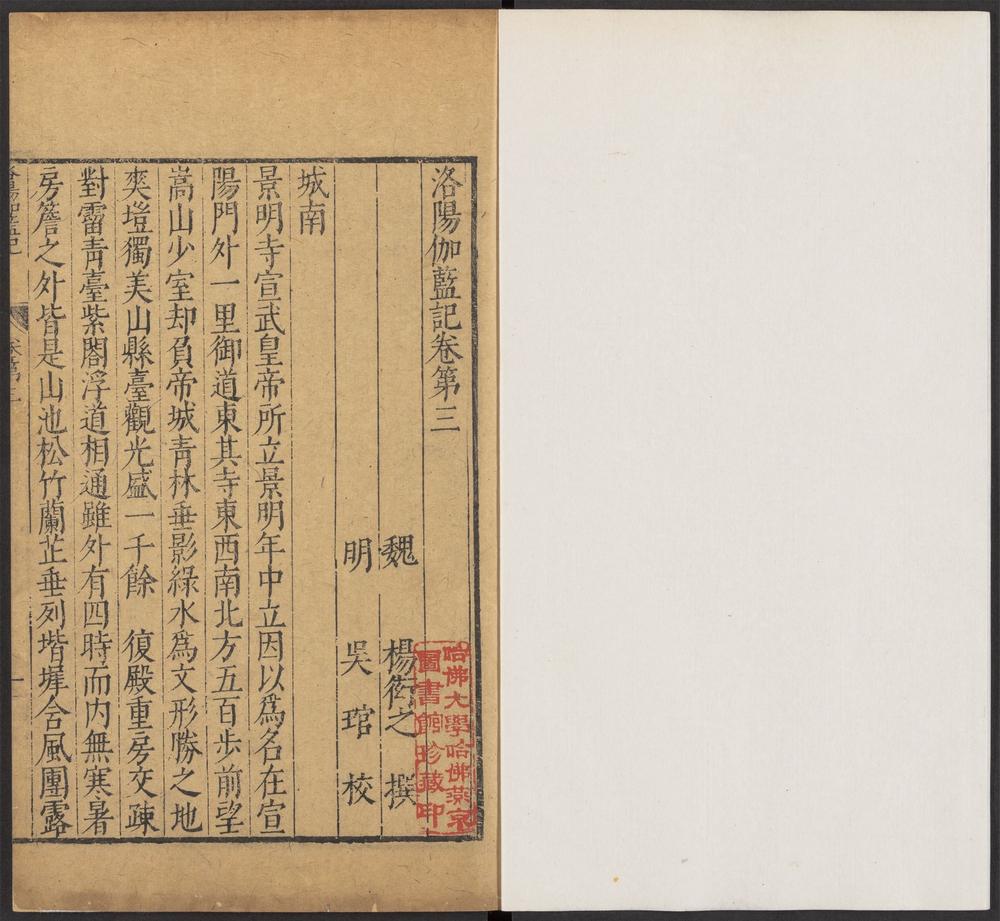 洛陽伽藍記卷第三
魏 楊衒之 撰
明 吳琯 校
城南
景明寺宣武皇帝所立景明年中立因以爲名在宣
陽門外一里御道東其寺東西南北方五百步前望
嵩山少室却負帝城青林垂影綠水爲文形勝之地
爽塏獨美山縣臺觀光盛一千餘 復殿重房交疎
對霤青臺紫閣浮道相通雖外有四時而内無寒暑
房簷之外皆是山池松竹蘭芷垂列堦墀含風團露
哈佛大學哈佛燕京
圖書館珍藏印